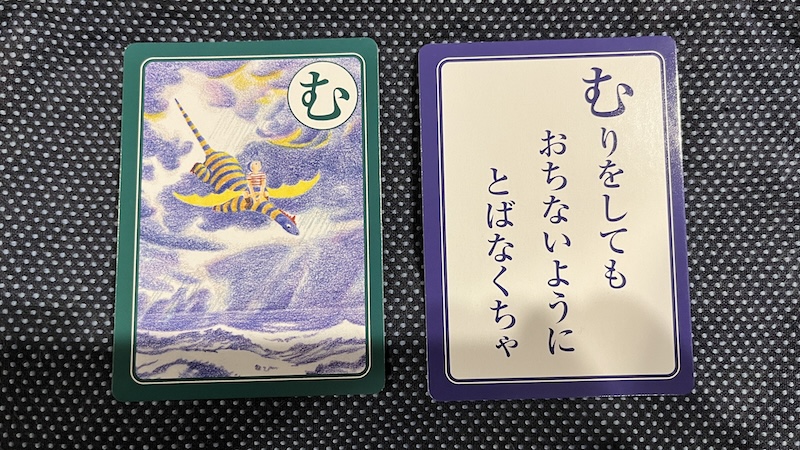 む
むりをしても
おちないように
とばなくちゃ